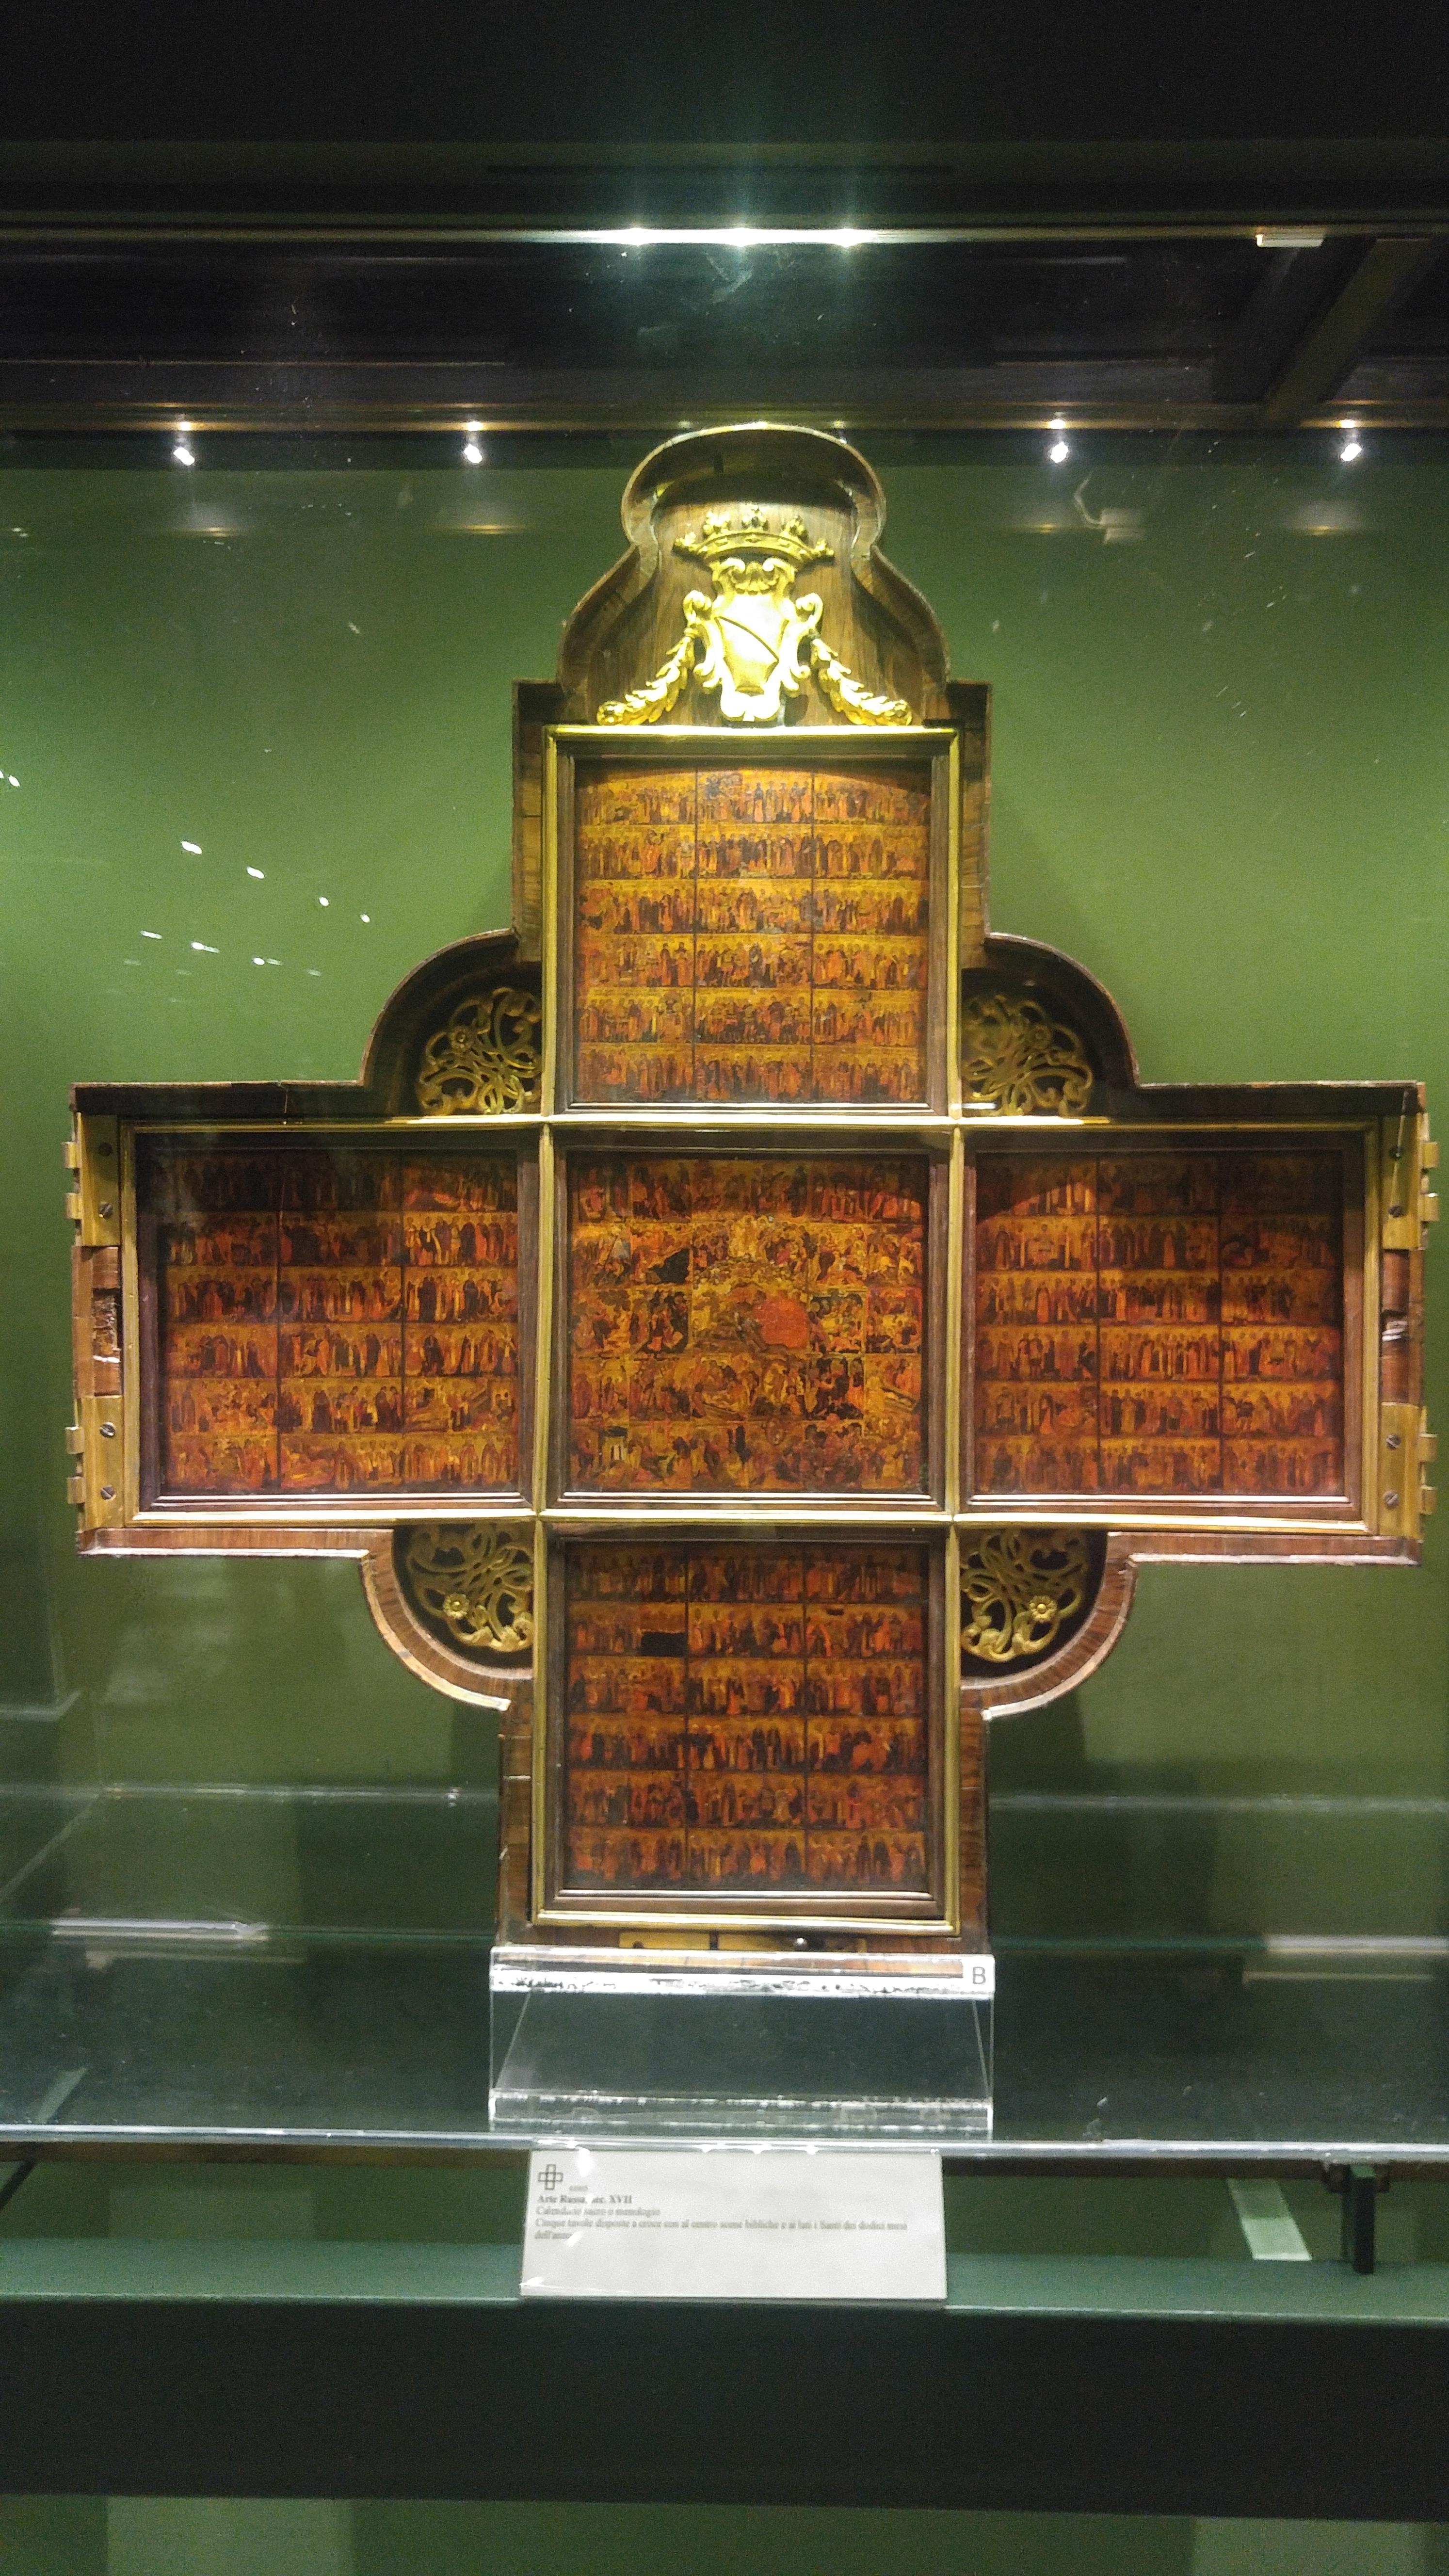 B
Arte Russa, sec. XVII
Calendario sacro o menologio
Cinque tavole disposte a croce con al centro scene bibliche e ai lati i Santi dei dodici mesi
dell'anno